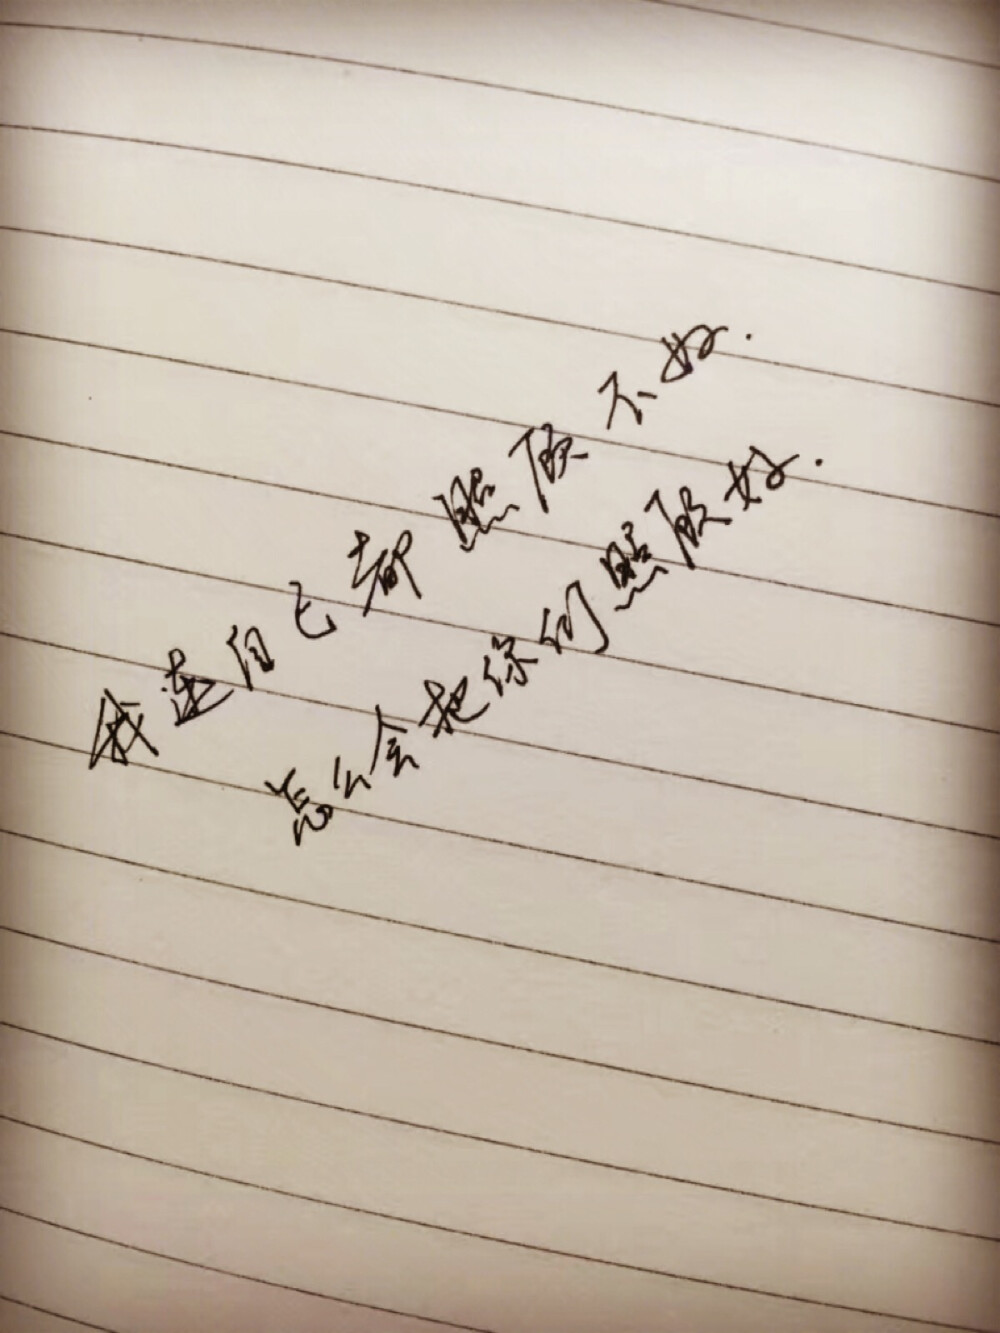 我连自己都照顾不好.
怎么会把你们照顾好.